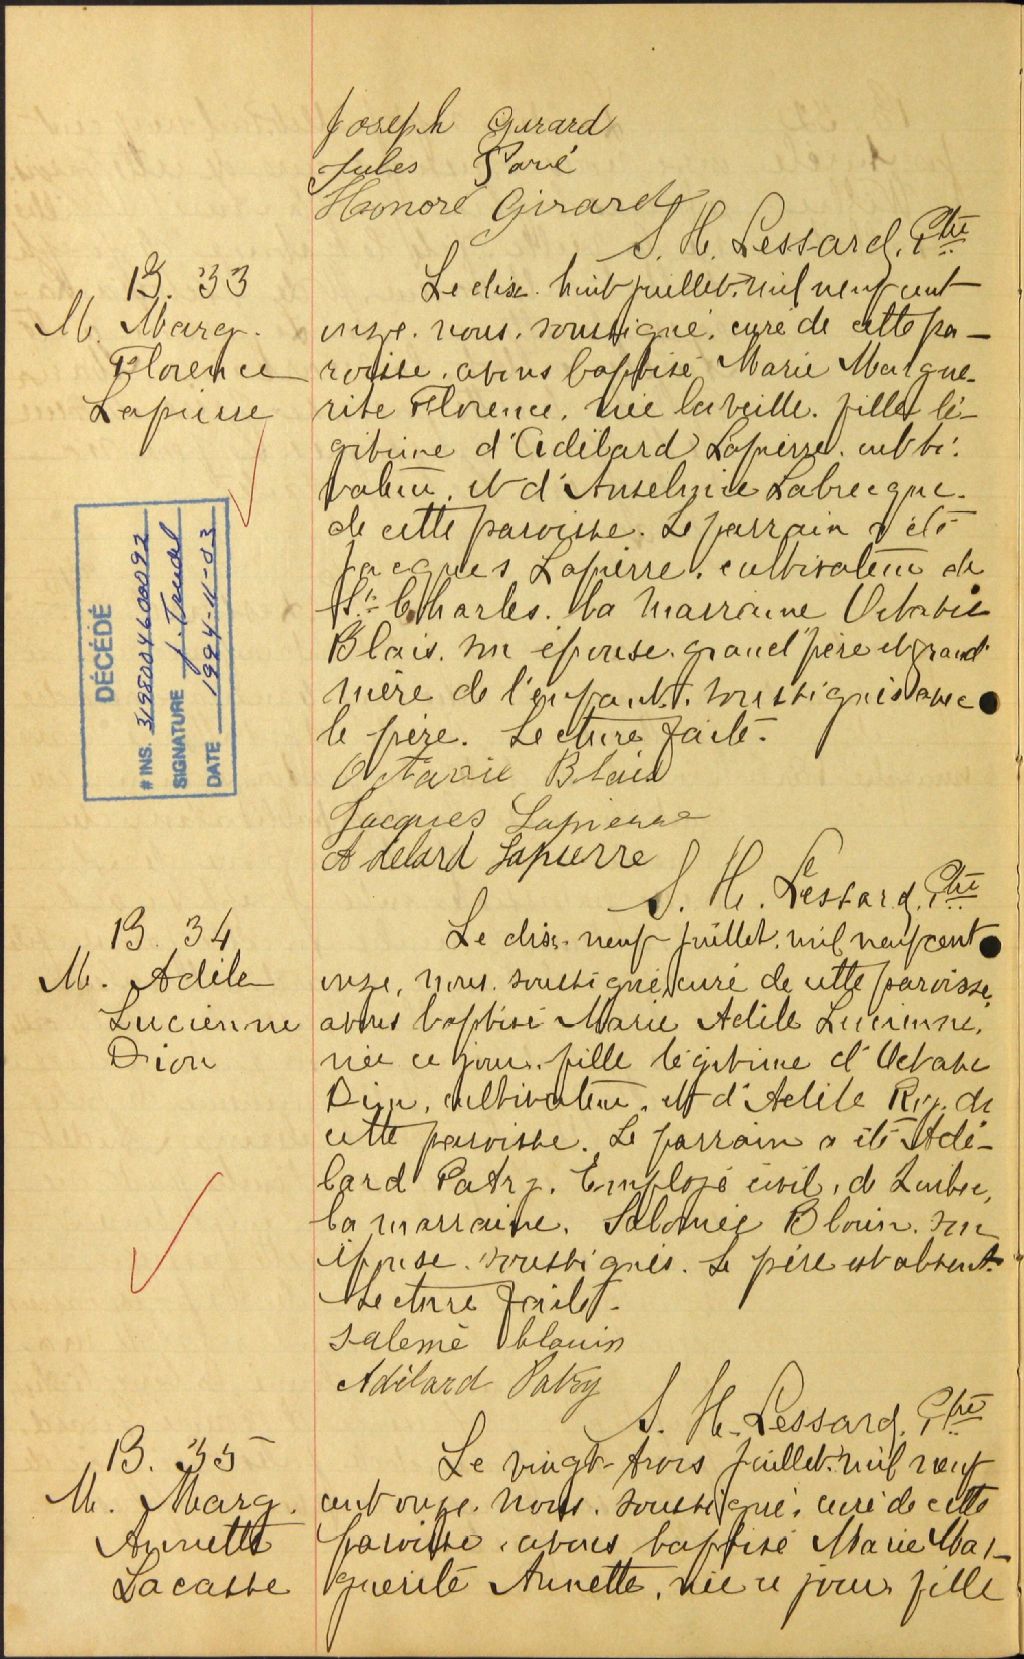 Joseph Girard
Jules Paré
Honoré Girard
S. H. Lessard. Ptre
B. 33
M. Marg.
Florence
Lapierre
Le dix-huit juillet, mil neuf cent
onze, nous, soussigné, curé de cette pa-
roisse, avons baptisé Marie Margue-
rite Florence, née la veille, fille lé-
gitime d'Adélard Lapierre, culti-
vateur, et d'Anselmie Labrecque
de cette paroisse. Le parrain a été
Jacques Lapierre, cultivateur de
St. Charles, la marraine Octavie
Blais, son épouse, grand'père et grand
mère de l'enfant, soussignés avec
le père. Lecture faite.
Octavie Blais
Jacques Lapierre
Adelard Lapierre
S. H. Lessard, Ptre
DÉCÉDÉ
# INS.
SIGNATURE
DATE 1994-11-03
B. 34
M. Adèle
Lucienne
Dion
Le dix-neuf juillet, mil neuf cent
onze, nous, soussigné, curé de cette paroisse,
avons baptisé Marie Adèle Lucienne,
née ce jour, fille légitime d'Octave
Dion, cultivateur, et d'Adèle Roy, de
cette paroisse. Le parrain a été Adé-
lard Patry, Employé civil, de Québec,
la marraine, Salomée Blouin, son
épouse, soussignés. Le père est absent.
Lecture faite.
Salemé blouin
Adélard Patry
S. H. Lessard, Ptre
B. 35
M. Marg.
Annette
Lacasse
Le vingt-trois juillet, mil neuf
cent onze, nous, soussigné, curé de cette
paroisse, avons baptisé Marie Mar-
guerite Annette, née ce jour, fille